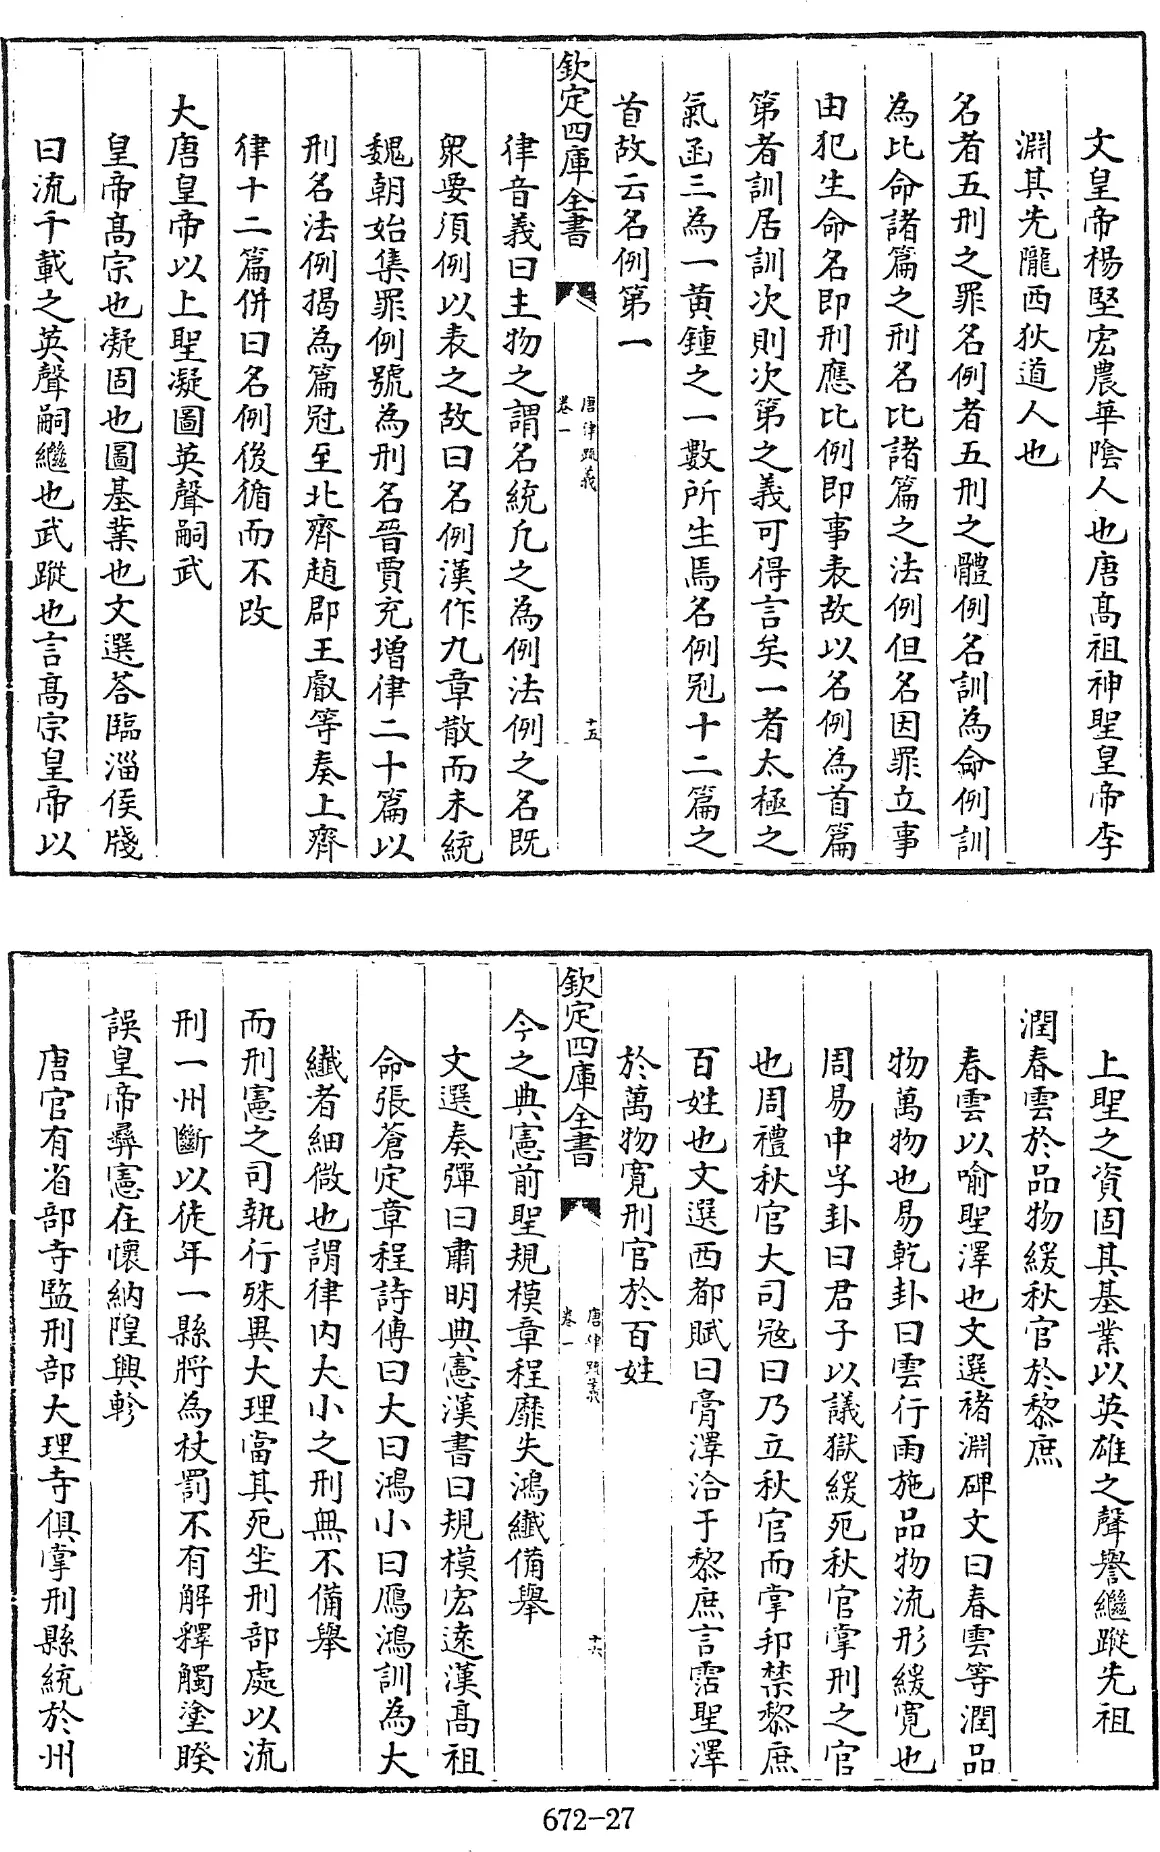 文皇帝楊堅宏農華陰人也唐髙祖神聖皇帝李
淵其先隴西狄道人也
名者五刑之罪名例者五刑之體例名訓為命例訓
為比命諸篇之刑名比諸篇之法例但名因罪立事
由犯生命名即刑應比例即事表故以名例為首篇
第者訓居訓次則次第之義可得言矣一者太極之
氣函三為一黄鍾之一數所生焉名例冠十二篇之
首故云名例第一
欽定四庫全書
唐律疏義
卷一
十五
律音義曰主物之謂名統凡之為例法例之名既
衆要須例以表之故曰名例漢作九章散而未統
魏朝始集罪例號為刑名晉賈充增律二十篇以
刑名法例揭為篇冠至北齊趙郡王叡等奏上齊
律十二篇併曰名例後循而不改
大唐皇帝以上聖凝圖英聲嗣武
皇帝髙宗也凝固也圖基業也文選荅臨淄侯牋
曰流千載之英聲嗣繼也武蹤也言髙宗皇帝以
上聖之資固其基業以英雄之聲譽繼蹤先祖
潤春雲於品物緩秋官於黎庶
春雲以喻聖澤也文選褚淵碑文曰春雲等潤品
物萬物也易乾卦曰雲行雨施品物流形緩寛也
周易中孚卦曰君子以議獄緩死秋官掌刑之官
也周禮秋官大司宼曰乃立秋官而掌邦禁黎庶
百姓也文選西都賦曰膏澤洽于黎庶言霑聖澤
於萬物寛刑官於百姓
欽定四庫全書
唐律疏義
卷一
十六
今之典憲前聖規模章程靡失鴻纎備舉
文選奏彈曰肅明典憲漢書曰規模宏遠漢髙祖
命張蒼定章程詩傳曰大曰鴻小曰鴈鴻訓為大
纎者細微也謂律内大小之刑無不備舉
而刑憲之司執行殊異大理當其死坐刑部處以流
刑一州斷以徒年一縣將為杖罰不有解釋觸塗睽
誤皇帝彝憲在懷納隍興軫
唐官有省部寺監刑部大理寺俱掌刑縣統於州
672-27